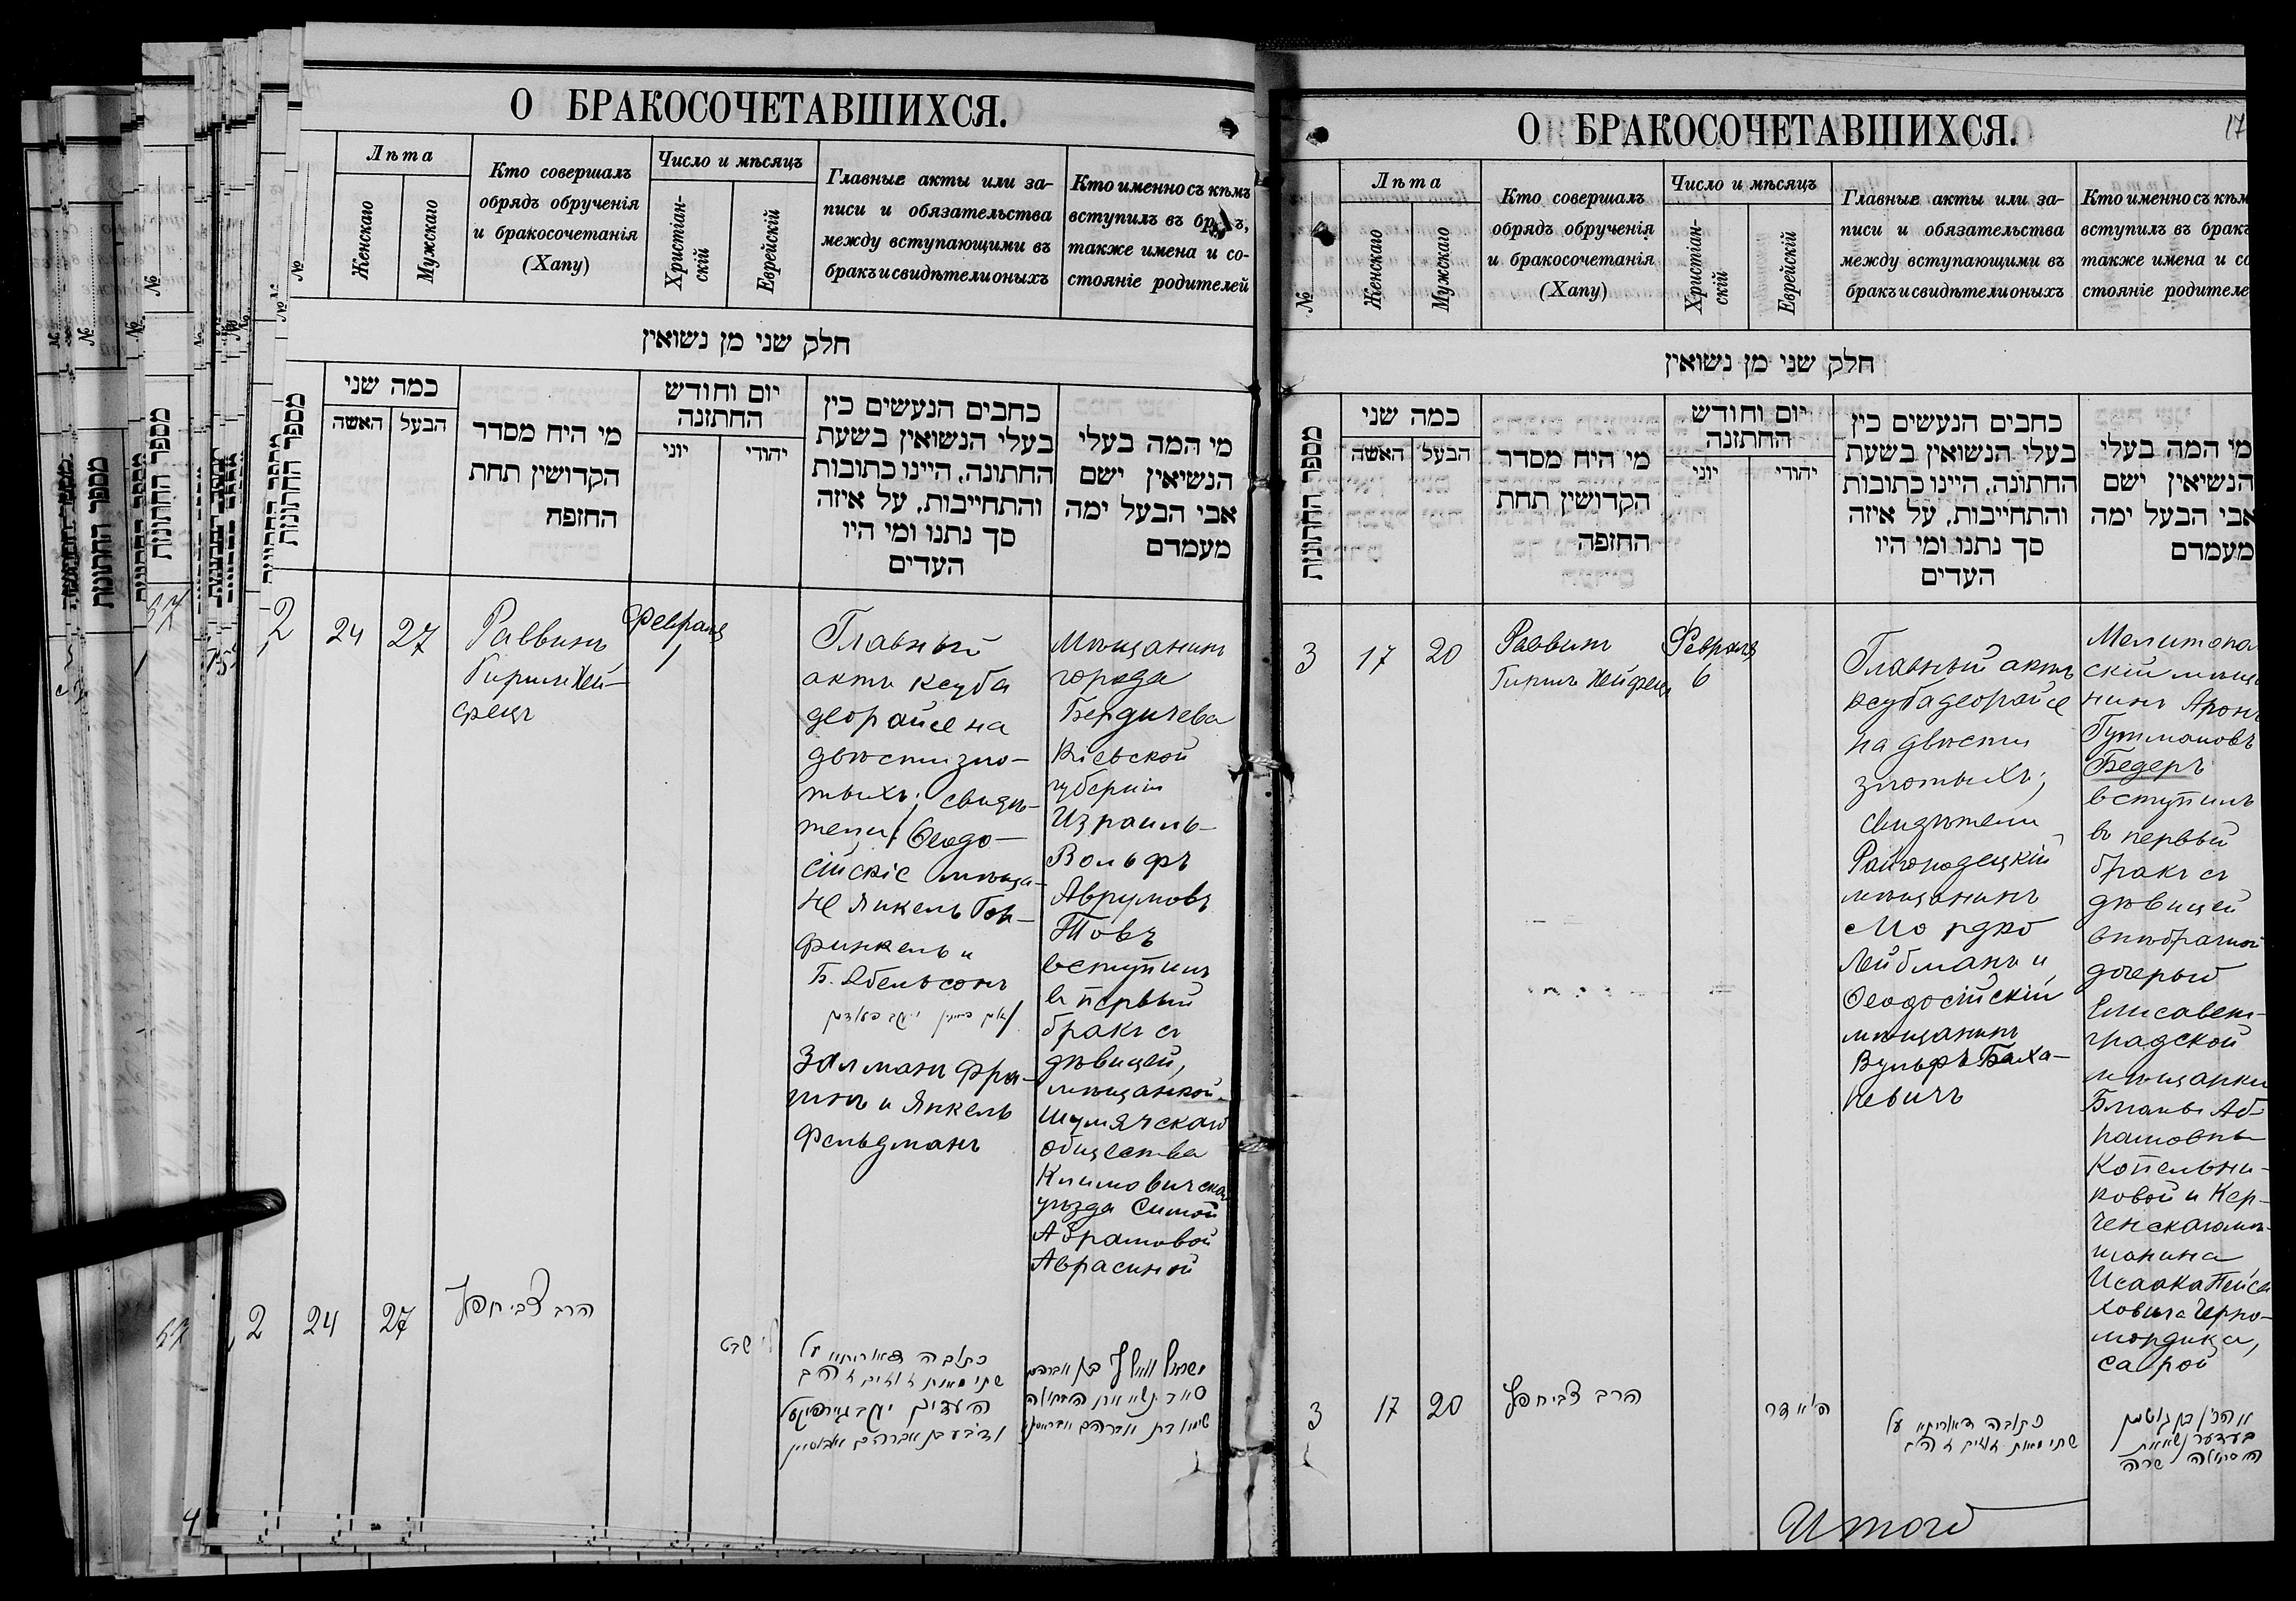 О БРАКОСОЧЕТАВШИХСЯ.
№
Лѣта
Женскаго
Мужскаго
Кто совершалъ
обрядъ обрученія
и бракосочетанія
(Хапу)
Число и мѣсяцъ
Христіан-
скій
Еврейскій
Главные акты или за-
писи и обязательства
между вступающими въ
бракъ и свидѣтели оныхъ
Кто именно съ кѣмъ
вступилъ въ бракъ,
также имена и со-
стояніе родителей
חלק שני מן נשואין
מספר החתונות
כמה שני
האשה
הבעל
מי היח מסדר
הקדושין תחת
החופה
יום וחודש
החתונה
יוני
יהודי
כחבים הנעשים כין
בעלי הנשואין בשעת
החתונה, היינו כתוכות
והתחייבות, על איזה
סך נתנו ומי היו
העדים
מי המה בעלי
הנשיאין ישם
אבי הבעל ימה
מעמדם
2
24
27
Раввинъ
Гиршъ Хей-
фецъ
Февраля
1
Главный
актъ ксуба
деорайсе на
двѣсти зло-
тыхъ; свидѣ-
тели: Ѳеодо-
сійскіе мѣща-
не Янкель Гор-
финкель и
Б. Абельсонъ
Залманъ Фри-
Янкель
Фельдманъ
Мѣщанинъ
города
Бердичева
Кіевской
губерніи
Израиль-
Вольфъ
Аврумовъ
Товъ
вступилъ
въ первый
бракъ съ
дѣвицей,
мѣщанкой
Шумячскаго
общества
Климовичскаго
уѣзда Симой
Абрамовой
Аврасиной
2
24
27
הרב צבי חפץ
שבט
כתובה דאורייתא על
שתי מאות זוזים
העדים יעקב גורפינקעל
ישראל וואלף בן אברהם
טאוו נשא את הבתולה
סימא בת אברהם
О БРАКОСОЧЕТАВШИХСЯ.
17
№
Лѣта
Женскаго
Мужскаго
Кто совершалъ
обрядъ обрученія
и бракосочетанія
(Хапу)
Число и мѣсяцъ
Христіан-
скій
Еврейскій
Главные акты или за-
писи и обязательства
между вступающими въ
бракъ и свидѣтели оныхъ
Кто именно съ кѣм
вступилъ въ бракъ
также имена и со
стояніе родителе
חלק שני מן נשואין
מספר החתונות
כמה שני
האשה
הבעל
מי היח מסדר
הקדושין תחת
החופה
יום וחודש
החתונה
יוני
יהודי
כחבים הנעשים כין
בעלי הנשואין בשעת
החתונה, היינו כתוכות
והתחייבות, על איזה
סך נתנו ומי היו
העדים
מי המה בעלי
הנשיאין ישם
אבי הבעל ימה
מעמדם
3
17
20
Раввинъ
Гиршъ Хейфецъ
Февраля
6
Главный актъ
ксуба деорайсе
на двѣсти
злотыхъ;
свидѣтели
Райгородецкій
мѣщанинъ
Мордко
Лейбманъ и
Ѳеодосійскій
мѣщанинъ
Вульфъ Баха-
ревичъ
Мелитополь
скій мѣща
нинъ Аронъ
Гутмановъ
Бедеръ
вступилъ
въ первый
бракъ съ
дѣвицей
внѣбрачной
дочерью
Елисавет-
градской
мѣщанки
Бланы Аб-
рамовны
Копельни-
ковой и Кер-
ченскаго мѣ-
щанина
Исаака Пейса
ховича Черно-
мордика,
Сарой
3
17
20
הרב צבי חפץ
אדר
כתובה דאורייתא על
שתי מאות זוזים
אהרן בן גוטמן
בעדער נשא את
הבתולה שרה
Итого